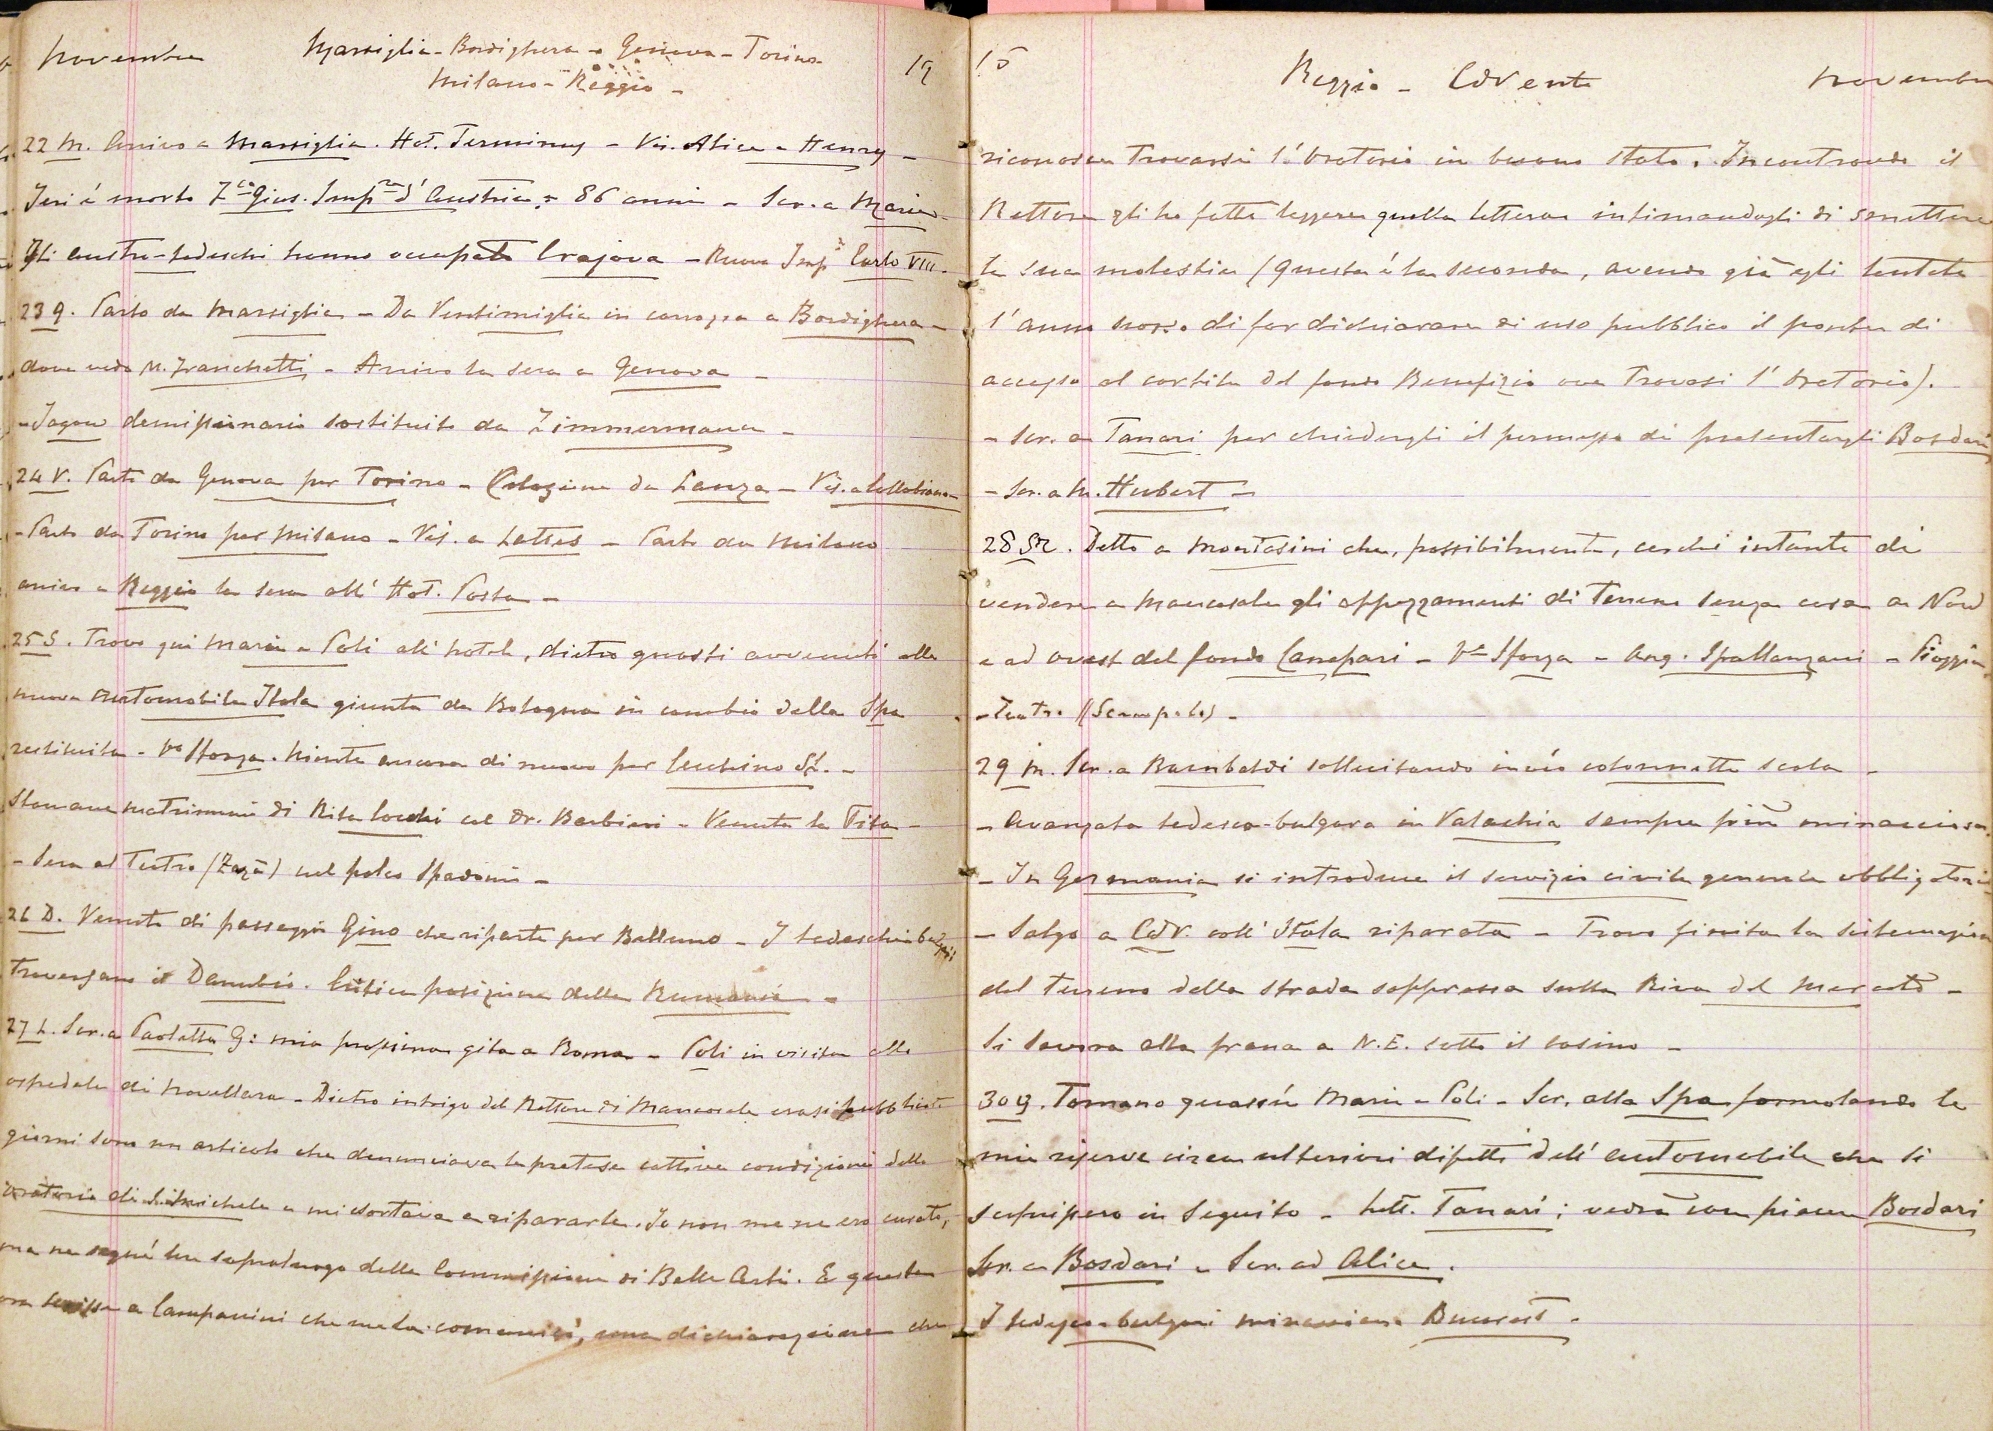 Novembre Marsiglia - Bordighera - Genova - Torino
Milano - Reggio -
22 M. Arrivo a Marsiglia. Hot. Terminus - Vis. Alice e Henry -
Ieri è morto Fco Gius. Impre d'Austria: 86 anni - Scr. a Maria -
Gli austro-tedeschi hanno occupato Crajova - Nuovo Impe Carlo VIII.
23 G. Parto da Marsiglia - Da Ventimiglia in carrozza a Bordighera -
dove vedo M. Franchetti - Arrivo la sera a Genova -
- Jagow demissionario sostituito da Zimmermann -
24 V. Parto da Genova per Torino - Colazione da Lanza - Vis. a
- Parto da Torino per Milano - Vis. a Lattes - Parto da Milano
arrivo a Reggio la sera all' Hot. Posta -
25 S. Trovo qui Maria e Poli all' hotel, dietro guasti avvenuti alla
nuova automobile Itala giunta da Bologna in cambio della Spa
restituita - Va Sforza. Niente ancora di nuovo per Cecchino Sf. -
Stamane matrimonio di Rita Cocchi col Dr. Barbieri - Venuta la Tita -
- Sera al Teatro (Zazà) nel palco Spadoni -
26 D. Venuto di passaggio Gino che riparte per Belluno - I tedeschi-bulgari
traversano il Danubio. Critica posizione della Rumania -
27 L. Scr. a Paoletta G: mia prossima gita a Roma - Poli in visita allo
ospedale di Novellara - Dietro intrigo del Rettore di Mancasale erasi pubblicato
giorni sono un articolo che denunciava le pretese cattive condizioni dello
oratorio di S. Michele e mi esortava a ripararlo. Io non me ne ero curato,
ma ne seguì un sopraluogo della Commissione di Belle Arti. E questa
ora scrisse a Campanini che me la comunicò, una dichiarazione che
15
Reggio - CdVento Novembre
riconosce trovarsi l'Oratorio in buono stato. Incontrando il
Rettore gli ho fatto leggere quella lettera intimandogli di smettere
le sue molestie (questa è la seconda, avendo già egli tentato
l'anno scorso di far dichiarare di uso pubblico il ponte di
accesso al cortile del fondo Benefizio ove trovasi l'Oratorio).
- Scr. a Tanari per chiedergli il permesso di presentargli Bosdari
- Scr. a M. Hubert -
28 M. Detto a Montasini che, possibilmente, cerchi intanto di
vendere a Mancasale gli appezzamenti di terreno senza casa a Nord
e ad ovest del fondo Canepari - Va Sforza - Ang. Spallanzani - Pioggia
- Teatro (Scampolo) -
29 M. Scr. a Rambaldi sollecitando invio colonnette scala -
- Avanzata tedesco-bulgara in Valachia sempre più minacciosa.
- In Germania si introduce il servizio civile generale obbligatorio
- Salgo a CdV. coll' Itala riparata - Trovo finita la sistemazione
del terreno della strada soppressa sulla Riva del Mercato -
Si lavora alla frana a N.E. sotto il casino -
30 G. Tornano quassù Maria e Poli - Scr. alla Spa formulando le
mie riserve circa ulteriori difetti dell' automobile che si
scoprissero in seguito - Lett. Tanari; vedrà con piacere Bosdari
Scr. a Bosdari e Scr. ad Alice.
I tedesco-bulgari minacciano Bucarest -